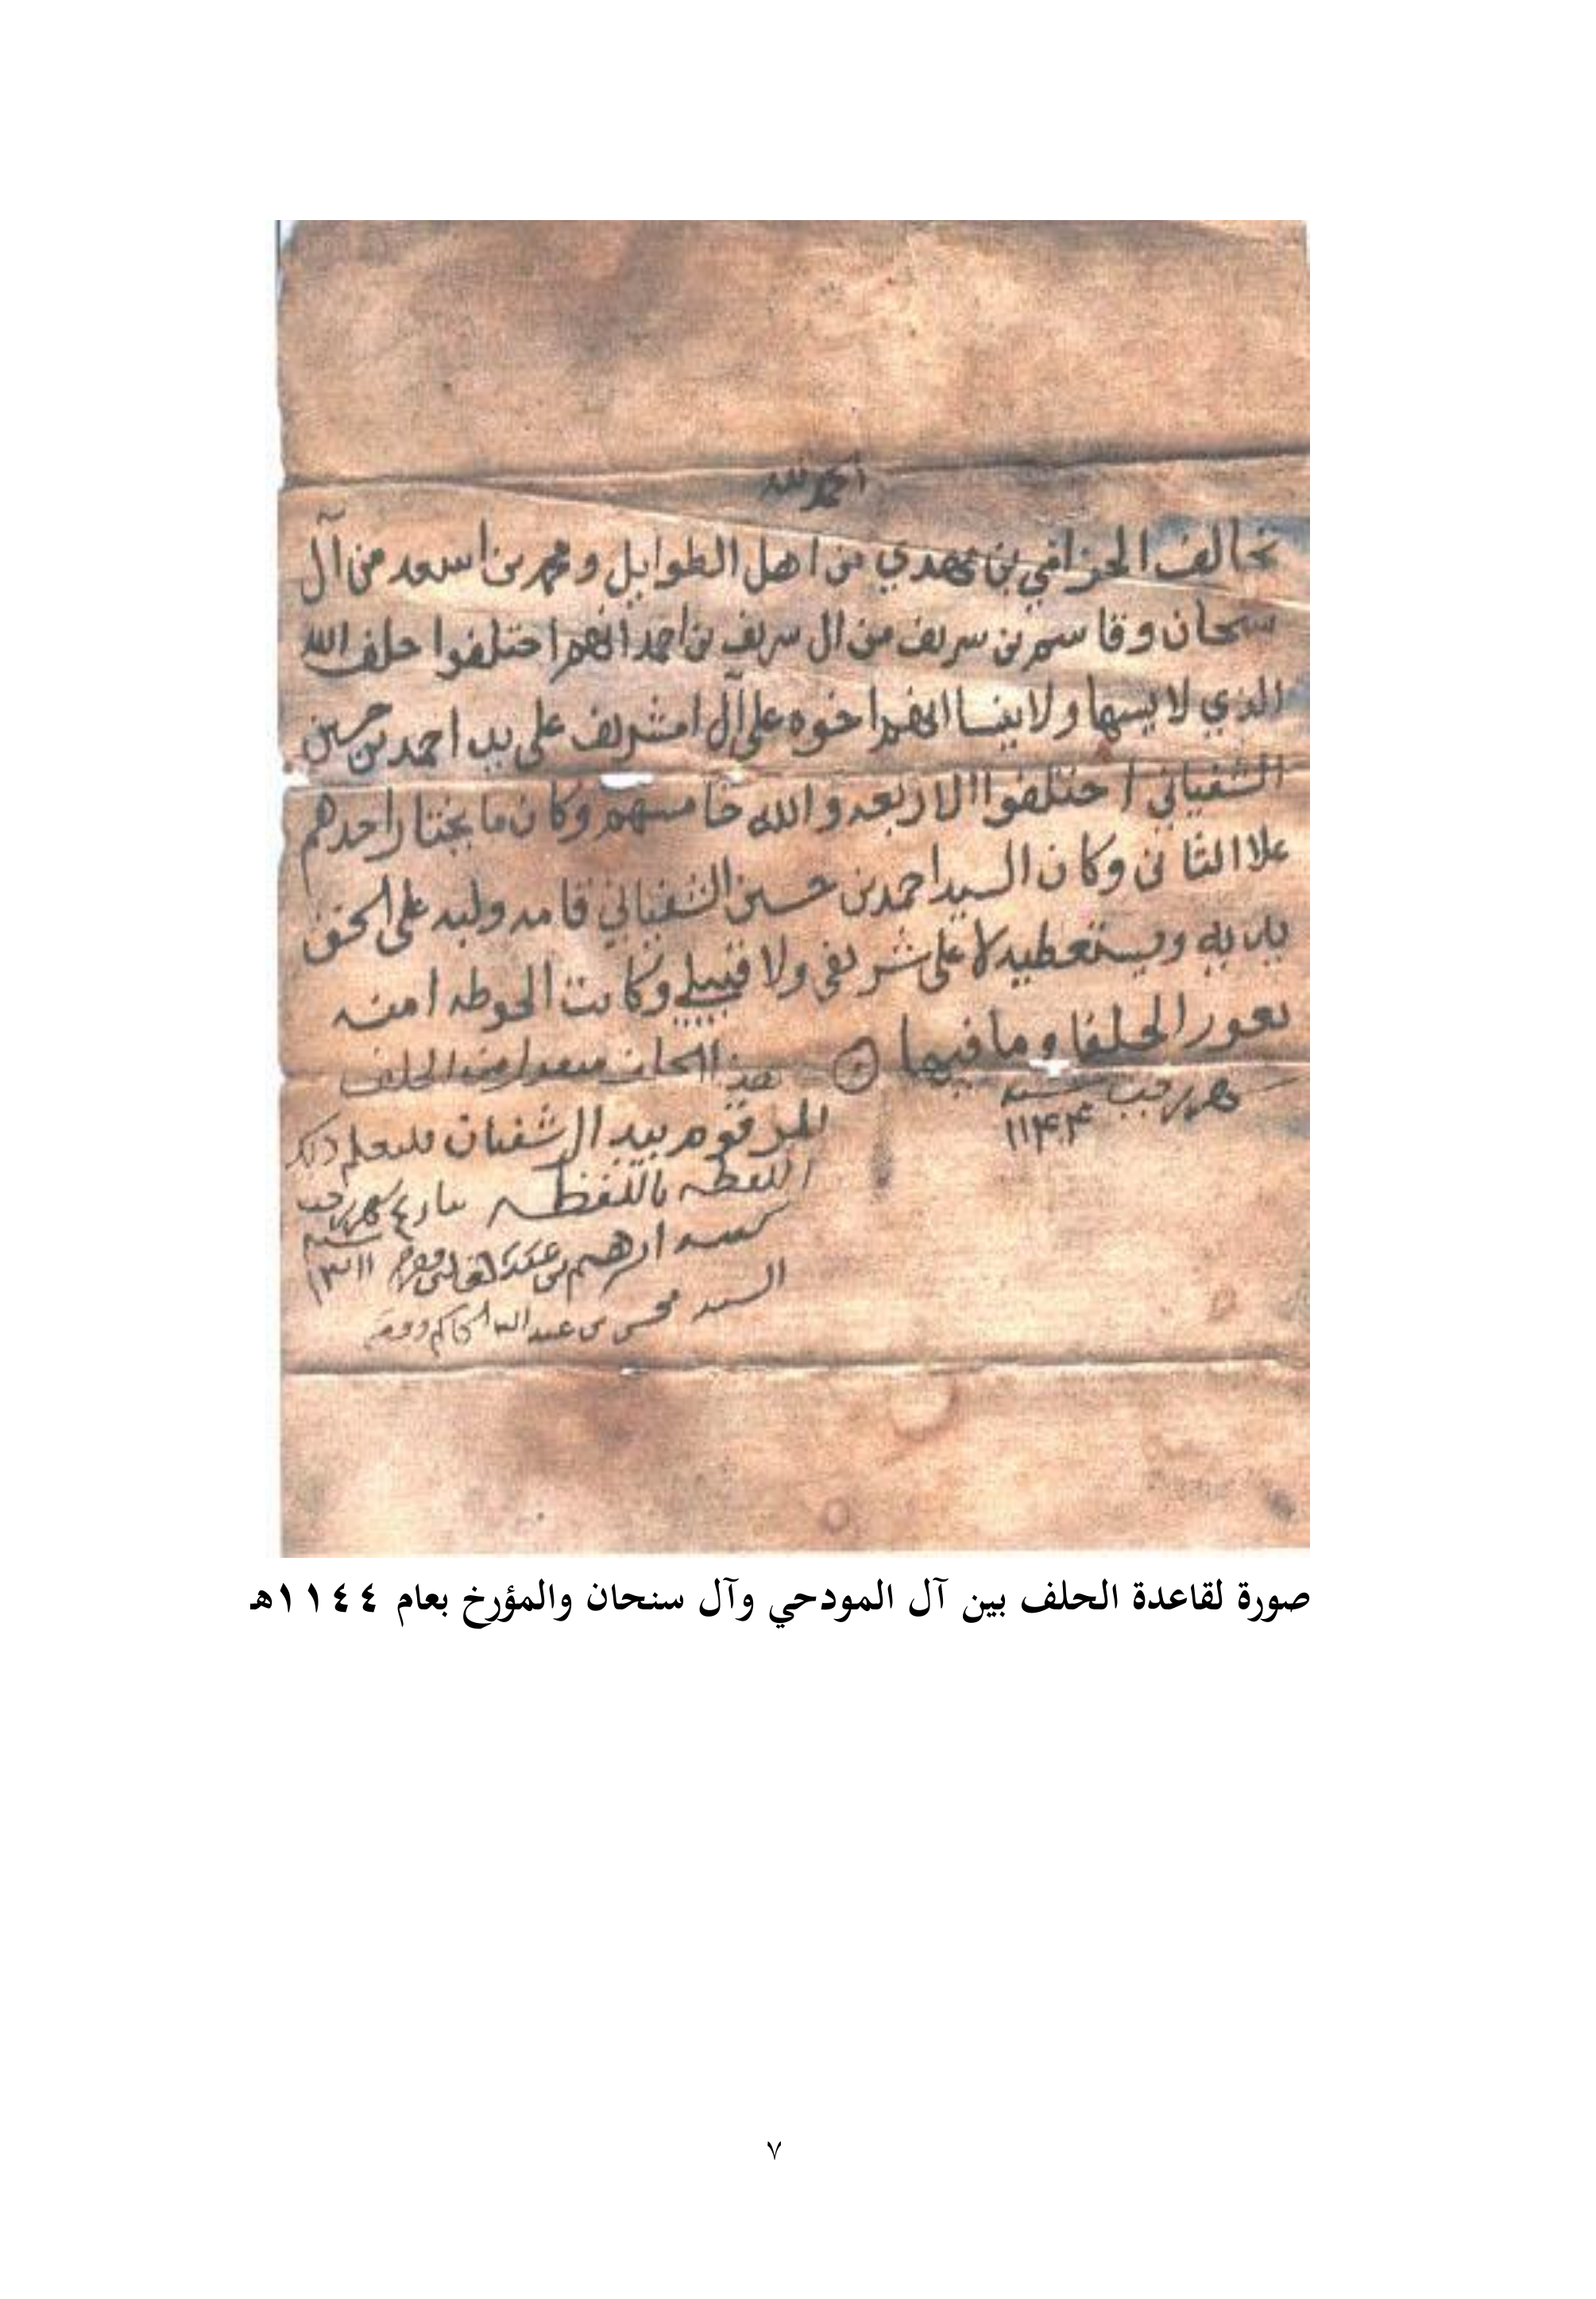 الحمد لله
تحالف الحزامي بن مهدي من اهل الطوايل ومحمد بن اسعد من آل
سنحان وقاسم بن سريف من ال سريف بن احمد انهم احتلفوا حلف الله
الذي لا يسها ولا ينسا انهم اخوه على آل امشريف على يد احمد بن حسين
الشفياني احتلفوا الاربعه والله خامسهم وكان ما يختار احدهم
علا الثاني وكان السيد احمد بن حسين الشفياني قامه وليه على الحق
يديه ويستعطيه لا على شريفي ولا قبيلي وكانت الحوطه امنه
بعور الحلفا وما فيها
شهر رجب سنه
١١٤٤
هذا منقول من الحلف
المرقوم بيد ال شفيان فليعلم ذلك
اللفظه باللفظه شهر رجب
سنه
١٣١١
السيد محسن بن عبدالله الحاكم
صورة لقاعدة الحلف بين آل المودحي وآل سنحان والمؤرخ بعام ١١٤٤هـ
٧